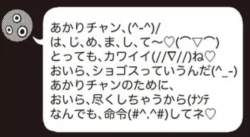 あかりチャン､(^-^)/
は､じ､め､ま､し､て～♡(⌒▽⌒)
とっても､カワイイ(//∇//)ね♡
おいら､ショゴスっていうんだ(^_-)
あかりチャンのために､
おいら､尽くしちゃうから(ﾅﾝﾃ
なんでも､命令(#^.^#)してネ♡